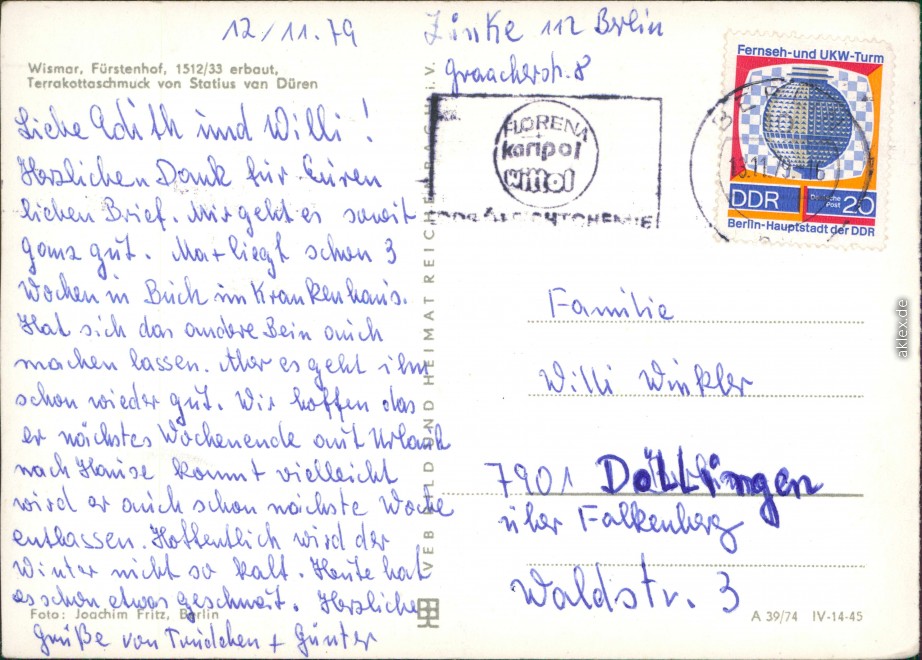 12/11.79
Zinke 112 Berlin
Graacherstr. 8
Wismar, Fürstenhof, 1512/33 erbaut,
Terrakottaschmuck von Statius van Düren
Liebe Edith und Willi!
Herzlichen Dank für Euren
lieben Brief. Mir geht es soweit
ganz gut. liegt schon 3
Wochen in Buch im Krankenhaus.
Hat sich das andere Bein auch
machen lassen. Aber es geht ihm
schon wieder gut. Wir hoffen das
er nächstes Wochenende auf Urlaub
nach Hause kommt vielleicht
wird er auch schon nächste Woche
entlassen. Hoffentlich wird der
Winter nicht so kalt. Heute hat
es schon etwas geschneit. Herzliche
Grüße von Trudchen + Günter
Foto: Joachim Fritz, Berlin
VEB BILD UND HEIMAT REICHENBACH i. V.
FLORENA
karipol
wittol
Fernseh- und UKW-Turm
DDR
Deutsche
Post
20
Berlin-Hauptstadt der DDR
13.11.79.-16
Familie
Willi Winkler
7901 Döllingen
über Falkenberg
Waldstr. 3
A 39/74 IV-14-45
aklex.de